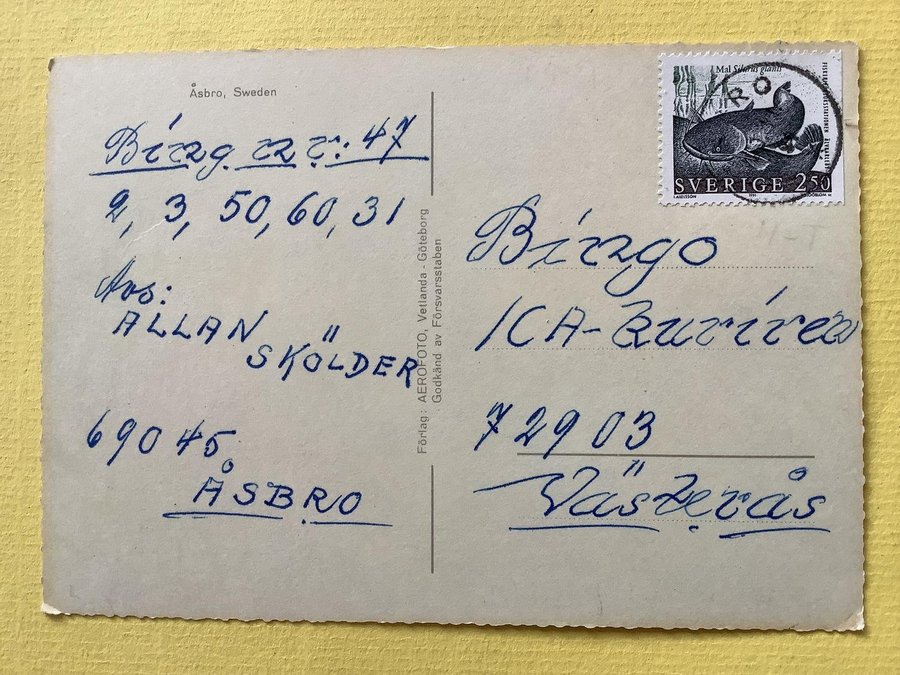 Åsbro, Sweden
Bingo nr: 47
2, 3, 50, 60, 31
Avs:
ALLAN
SKÖLDER
69045
ÅSBRO
Förlag: AEROFOTO, Vetlanda - Göteborg
Godkänd av Försvarsstaben
Mal Silurus glanis
SVERIGE 250
1991
RO
Bingo
ICA-Kuriren
72903
Västerås